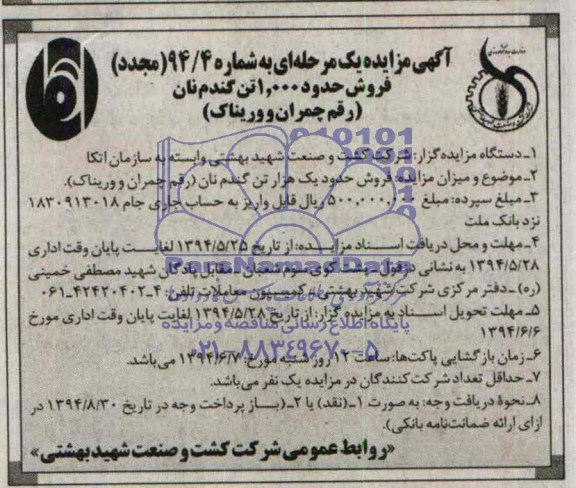 آگهی مزایده یک مرحله‌ای به شماره ۹۴/۴ (مجدد)
فروش حدود ۱,۰۰۰ تن گندم نان
(رقم چمران و وریناک)
۱ـ دستگاه مزایده‌گزار: شرکت کشت و صنعت شهید بهشتی وابسته به سازمان اتکا
۲ـ موضوع و میزان مزایده: فروش حدود یک هزار تن گندم نان (رقم چمران و وریناک).
۳ـ مبلغ سپرده: مبلغ ۵۰۰,۰۰۰,۰۰۰ ریال قابل واریز به حساب جاری جام ۱۸۳۰۹۱۳۰۱۸
نزد بانک ملت
۴ـ مهلت و محل دریافت اسـناد مزایـده: از تاریخ ۱۳۹۴/۵/۲۵ لغایـت پایان وقت اداری
۱۳۹۴/۵/۲۸ به نشانی دزفول ـ پشت کوی سوم شعبان ـ مقابل پادگان شهید مصطفی خمینی
(ره) ـ دفتر مرکزی شرکت شهید بهشتی ـ کمیسیون معاملات تلفن: ۴ـ۴۲۴۲۰۴۰۲ـ۰۶۱
۵ـ مهلت تحویل اسـناد به مزایده گزار: از تاریخ ۱۳۹۴/۵/۲۸ لغایت پایان وقت اداری مورخ
۱۳۹۴/۶/۶
۶ـ زمان بازگشایی پاکت‌ها: ساعت ۱۲ روز شنبه مورخ: ۱۳۹۴/۶/۷ می‌باشد.
۷ـ حداقل تعداد شرکت‌کنندگان در مزایده یک نفر می‌باشد.
۸ـ نحوهٔ دریافت وجه: به صورت ۱ـ (نقد) یا ۲ـ (بـاز پرداخت وجه در تاریخ ۱۳۹۴/۸/۳۰ در
ازای ارائه ضمانت‌نامه بانکی).
«روابط عمومی شرکت کشت و صنعت شهید بهشتی»
ParsNamadData
پایگاه اطلاع رسانی مناقصه و مزایده
۰۲۱-۸۸۳۴۹۶۷۰-۵